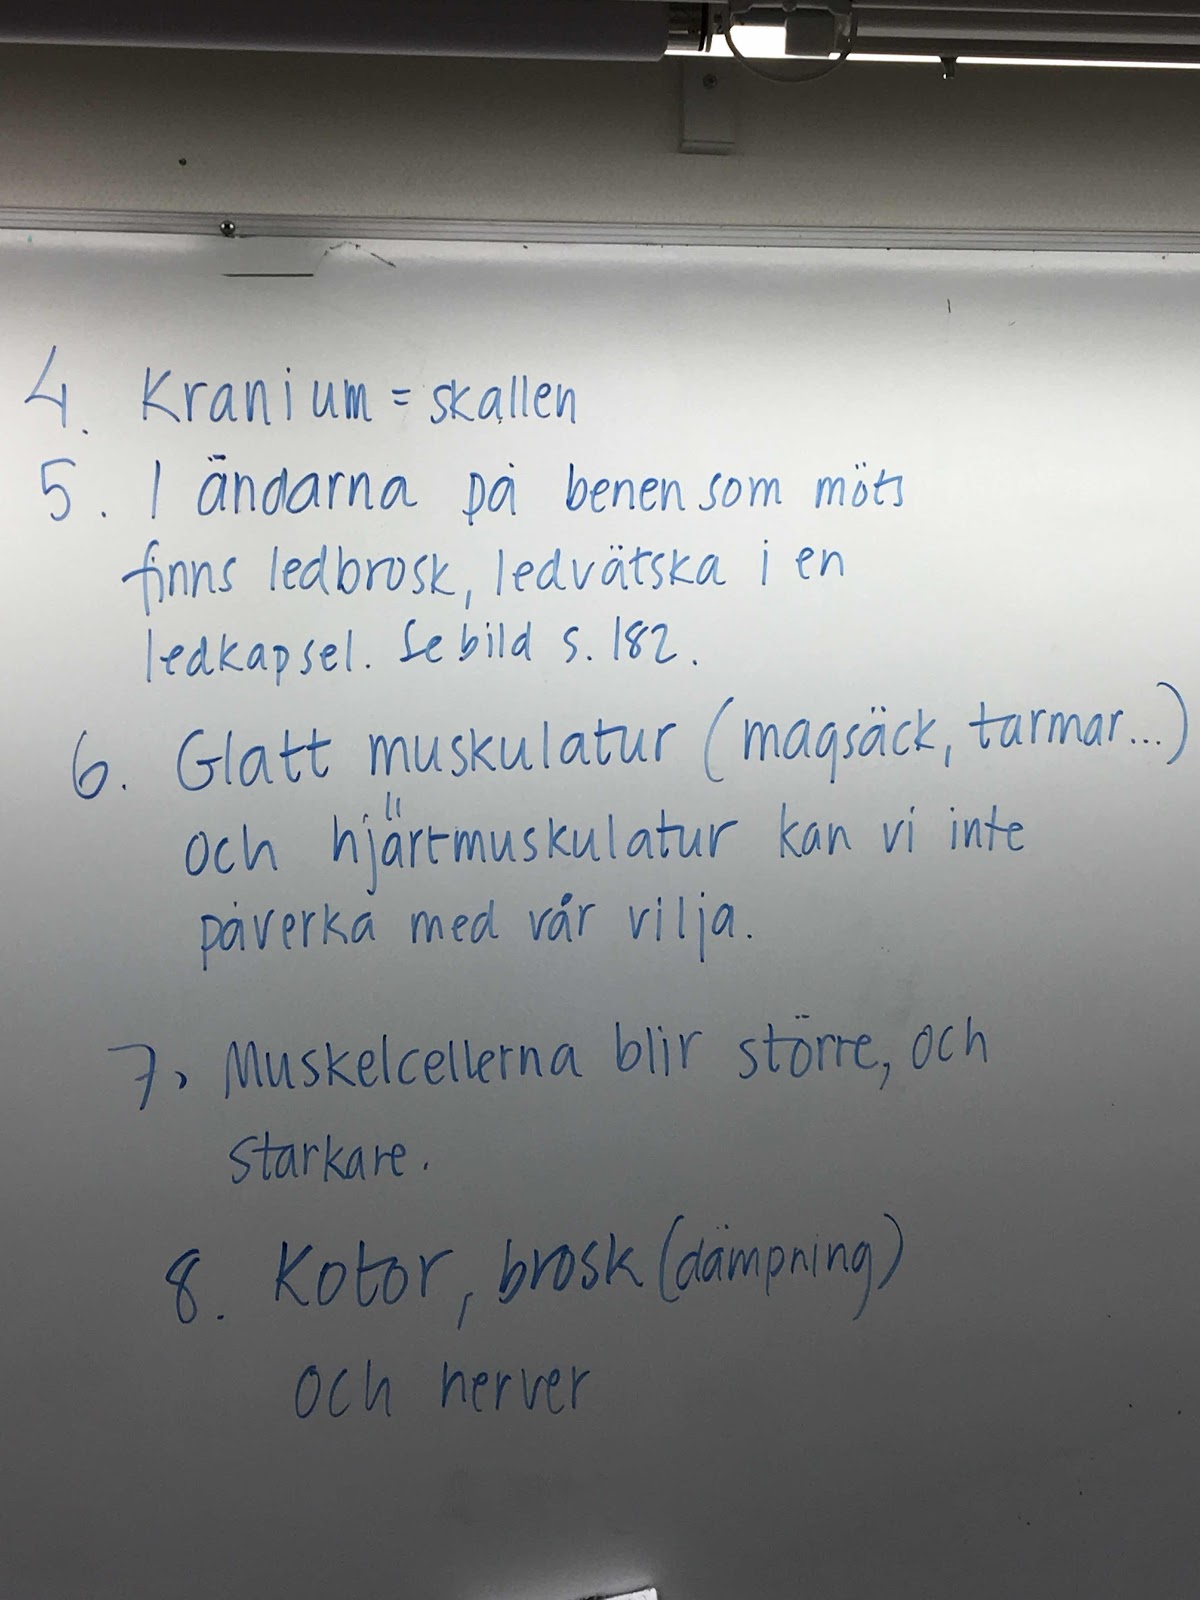 4. Kranium = skallen
5. I ändarna på benen som möts
finns ledbrosk, ledvätska i en
ledkapsel. Se bild s. 182.
6. Glatt muskulatur (magsäck, tarmar...)
och hjärtmuskulatur kan vi inte
påverka med vår vilja.
7. Muskelcellerna blir större, och
starkare.
8. Kotor, brosk (dämpning)
och nerver